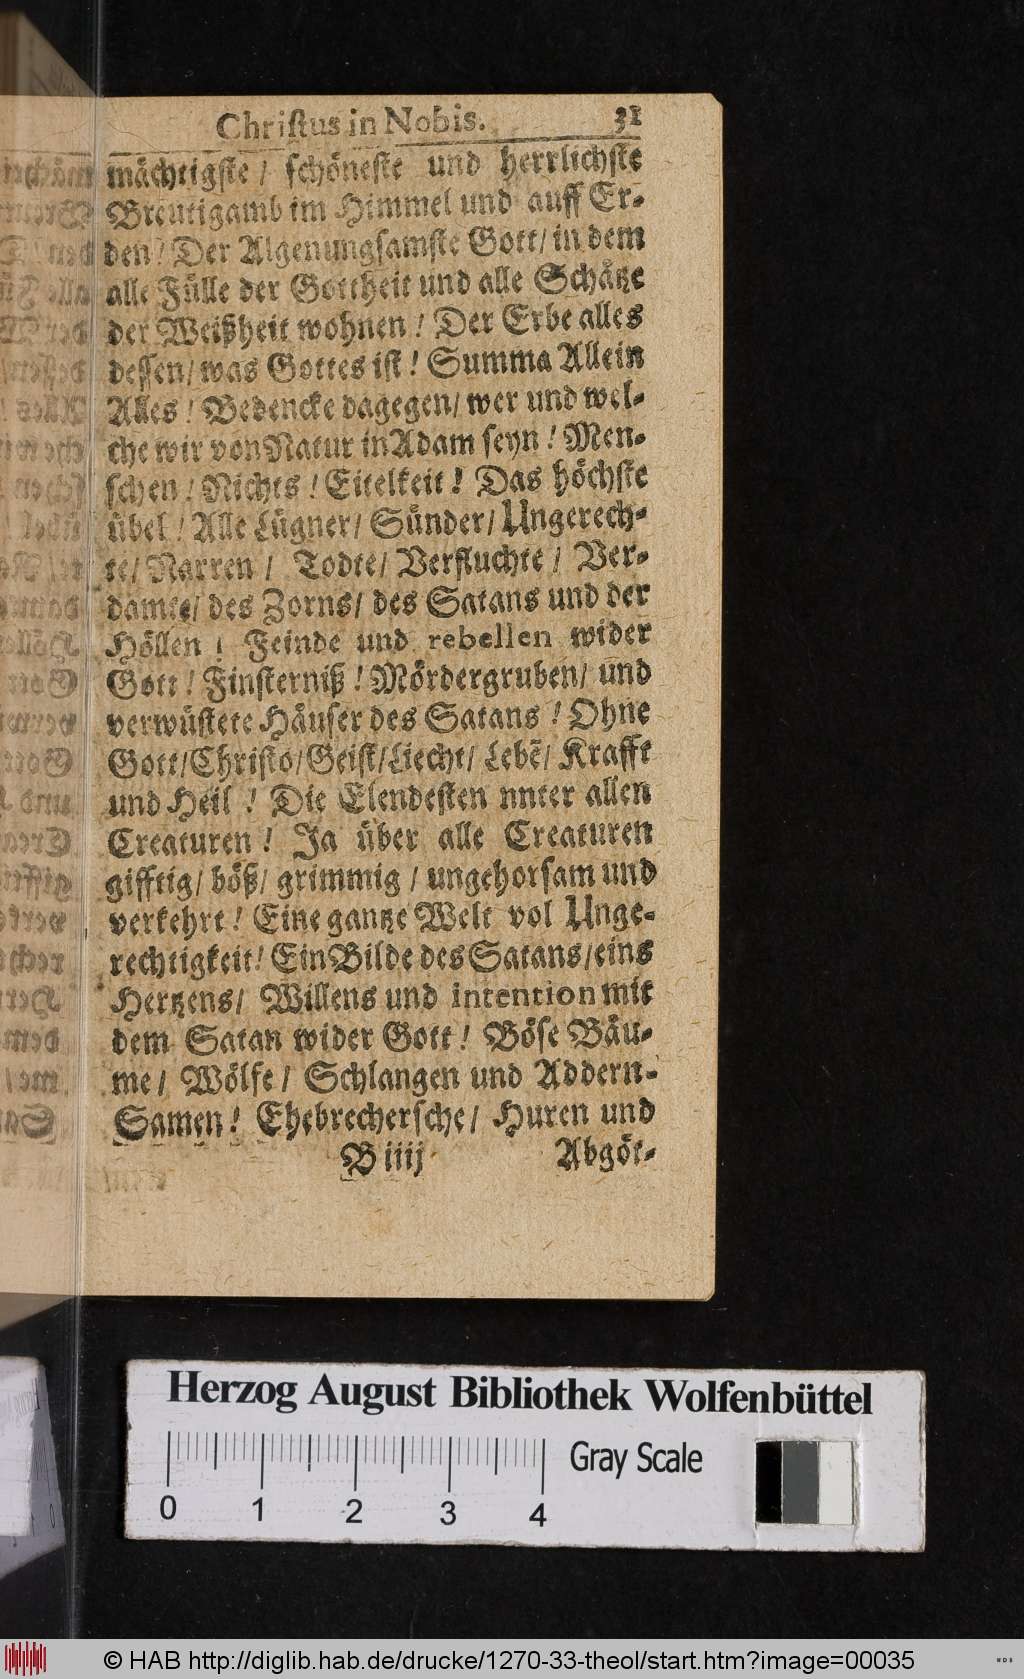 Christus in Nobis. 31
mächtigste / schöneste und herrlichste
Breutigamb im Himmel und auff Er-
den! Der Algenungsamste Gott / in dem
alle Fülle der Gottheit und alle Schätze
der Weißheit wohnen! Der Erbe alles
dessen / was Gottes ist! Summa Allein
Alles! Bedencke dagegen / wer und wel-
che wir von Natur in Adam seyn! Men-
schen! Nichts! Eitelkeit! Das höchste
übel! Alle Lügner / Sünder / Ungerech-
te / Narren / Todte / Verfluchte / Ver-
damte / des Zorns / des Satans und der
Höllen! Feinde und rebellen wider
Gott! Finsterniß! Mördergruben / und
verwüstete Häuser des Satans! Ohne
Gott / Christo / Geist / Liecht / Lebẽ / Krafft
und Heil! Die Elendesten nnter allen
Creaturen! Ja über alle Creaturen
gifftig / böß / grimmig / ungehorsam und
verkehrt! Eine gantze Welt vol Unge-
rechtigkeit! Ein Bilde des Satans / eins
Hertzens / Willens und intention mit
dem Satan wider Gott! Böse Bäu-
me / Wölfe / Schlangen und Addern-
Samen! Ehebrechersche / Huren und
B iiij Abgöt-
Herzog August Bibliothek Wolfenbüttel
Gray Scale
0 1 2 3 4
© HAB http://diglib.hab.de/drucke/1270-33-theol/start.htm?image=00035